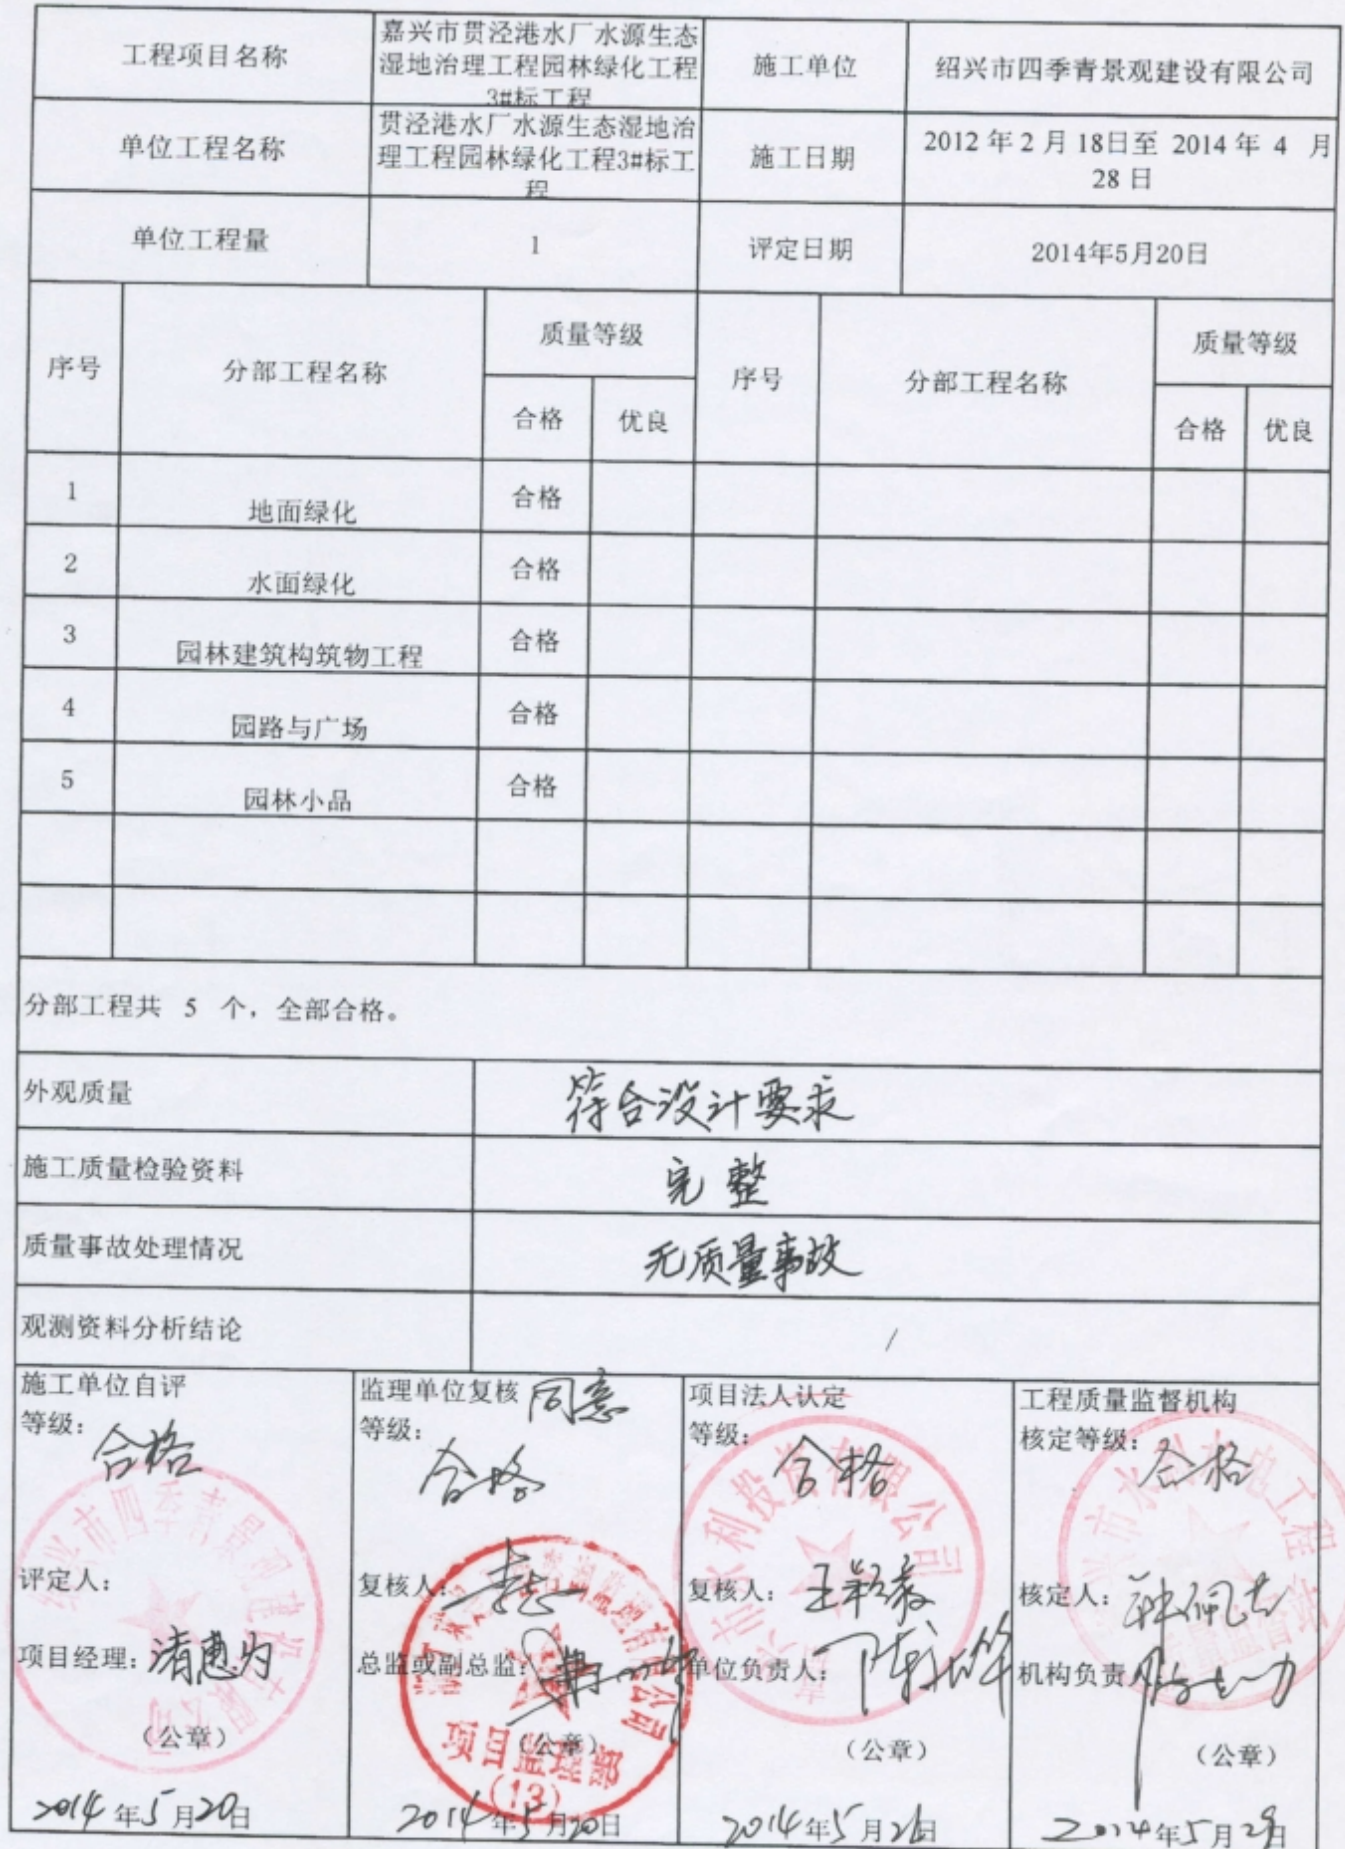 工程项目名称
嘉兴市贯泾港水厂水源生态
湿地治理工程园林绿化工程
3#标工程
施工单位
绍兴市四季青景观建设有限公司
单位工程名称
贯泾港水厂水源生态湿地治
理工程园林绿化工程3#标工
程
施工日期
2012 年 2 月 18日至 2014 年 4 月
28 日
单位工程量
1
评定日期
2014年5月20日
序号
分部工程名称
质量等级
合格
优良
序号
分部工程名称
质量等级
合格
优良
1
地面绿化
合格
2
水面绿化
合格
3
园林建筑构筑物工程
合格
4
园路与广场
合格
5
园林小品
合格
分部工程共 5 个，全部合格。
外观质量
符合设计要求
施工质量检验资料
完整
质量事故处理情况
无质量事故
观测资料分析结论
/
施工单位自评
等级：
合格
评定人：
项目经理：
（公章）
2014年5月20日
监理单位复核 同意
等级：
合格
复核人：
总监或副总监：
（公章）
项目监理部
（13）
2014年5月20日
项目法人认定
等级：
合格
水利投资有限公司
复核人：
单位负责人：
（公章）
2014年5月 日
工程质量监督机构
核定等级：
合格
核定人：
机构负责人
（公章）
2014年5月 日
绍兴市四季青景观建设有限公司